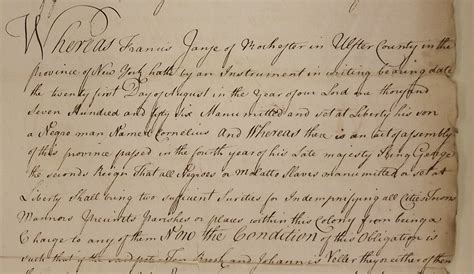 Whereas Francis Jansz of Rochester in Ulster County in the
province of New York hath by an Instrument in writing bearing date
the twenty first Day of August in the Year of our Lord one thousand
Seven Hundred and fifty six Manumitted and set at Liberty his son
a Negro man Named Cornelius And Whereas there is an Act of assembly
of this province passed in the fourth year of his Late majesty King George
the seconds Reign That all Negroes or Malatto Slaves manumitted & set at
Liberty Shall bring two sufficient Surities for Indempnifying all Cities Towns
Mannors Precincts Parishes or places within this Colony from being a
Charge to any of them Now the Condition of this Obligation is
such that if the said and Johannes they or either of them